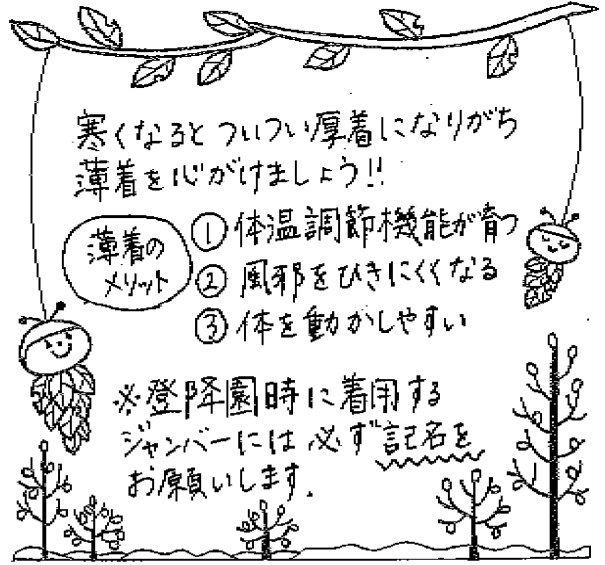 寒くなるとついつい厚着になりがち
薄着を心がけましょう!!
薄着の
メリット
① 体温調節機能が育つ
② 風邪をひきにくくなる
③ 体を動かしやすい
※登降園時に着用する
ジャンバーには必ず記名を
お願いします.